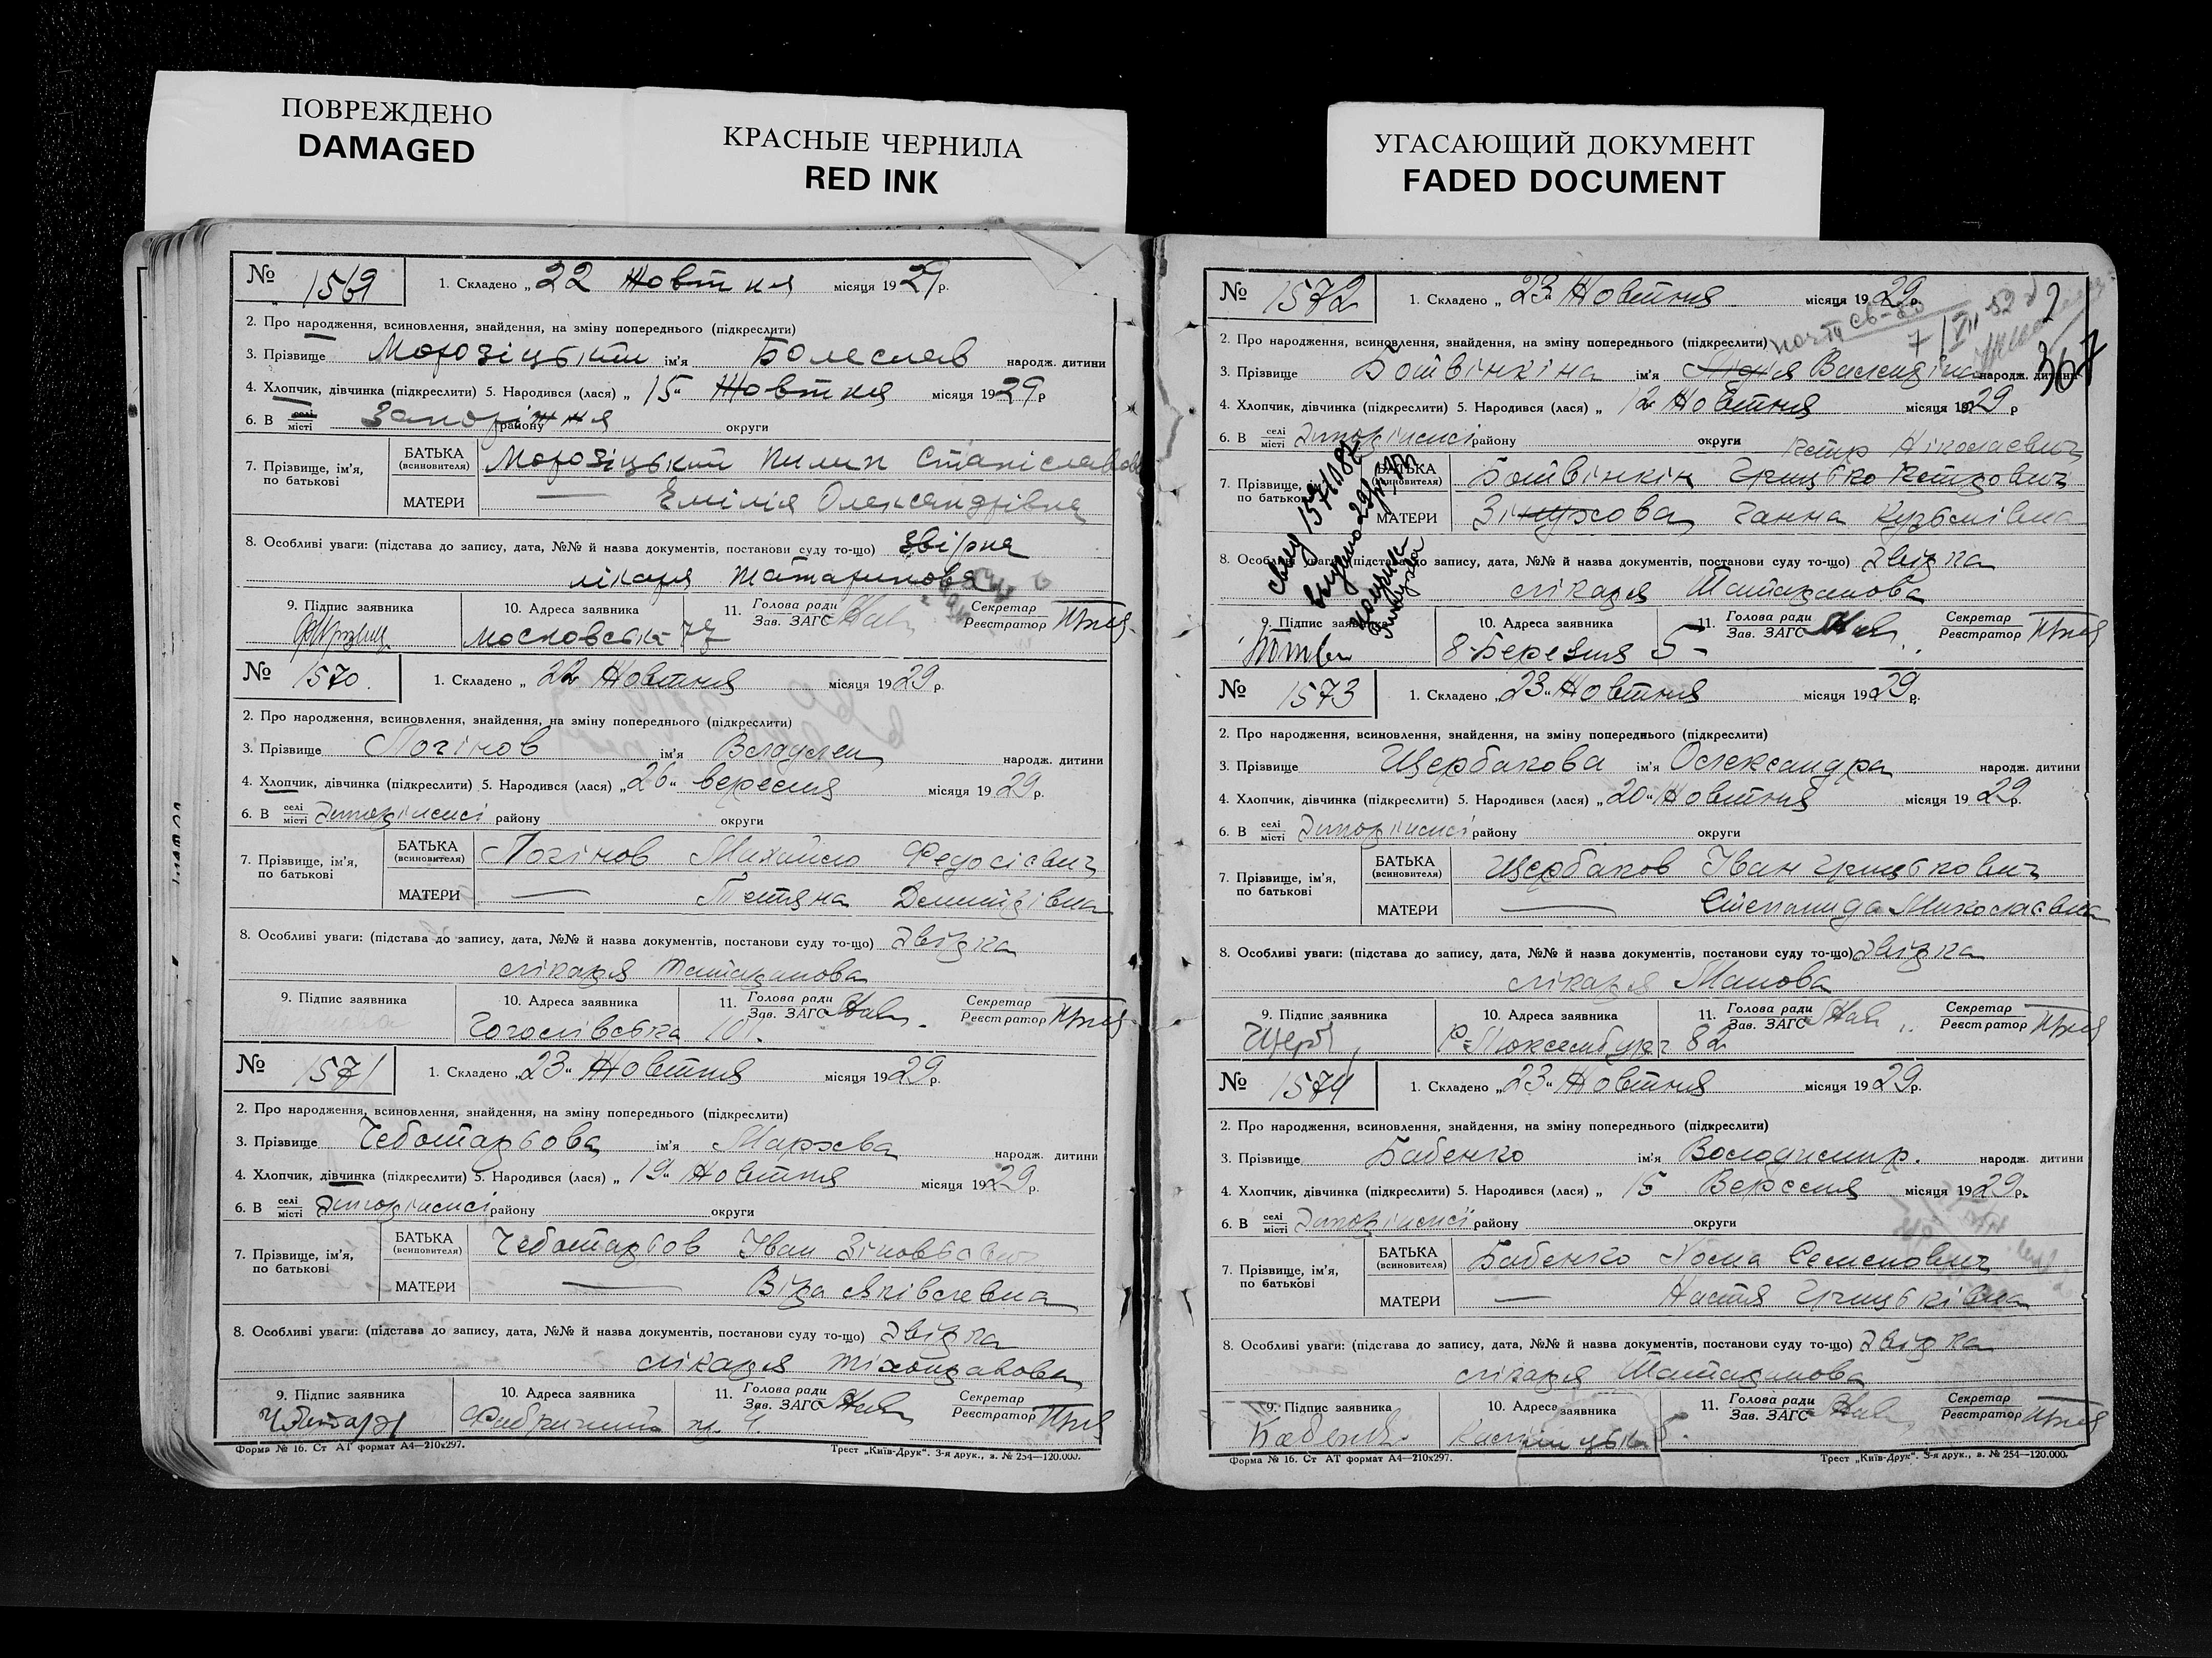 ПОВРЕЖДЕНО
DAMAGED
КРАСНЫЕ ЧЕРНИЛА
RED INK
УГАСАЮЩИЙ ДОКУМЕНТ
FADED DOCUMENT
№ 1569 1. Складено „ 22 Жовтня місяця 1929 р.
2. Про народження, всиновлення, знайдення, на зміну попереднього (підкреслити)
3. Прізвище Морозіцький ім'я Болеслав народж. дитини
4. Хлопчик, дівчинка (підкреслити) 5. Народився (лася) „ 15 " Жовтня місяця 1929 р
6. В селі місті Запоріжжя району округи
7. Прізвище, ім'я, по батькові БАТЬКА (всиновителя) Морозіцький Пилип Станіславов
МАТЕРИ — Емілія Олександрівна
8. Особливі уваги: (підстава до запису, дата, №№ й назва документів, постанови суду то-що) Звірка
лікаря Татаринова
9. Підпис заявника 10. Адреса заявника Московська 77 11. Голова ради Зав. ЗАГС Секретар Реєстратор
№ 1570. 1. Складено „ 22 Жовтня місяця 1929 р.
2. Про народження, всиновлення, знайдення, на зміну попереднього (підкреслити)
3. Прізвище Логінов ім'я Владлен народж. дитини
4. Хлопчик, дівчинка (підкреслити) 5. Народився (лася) „ 26 " вересня місяця 1929 р.
6. В селі місті Запоріжжі району округи
7. Прізвище, ім'я, по батькові БАТЬКА (всиновителя) Логінов Михайло Федосієвич
МАТЕРИ — Тетяна Дмитрівна
8. Особливі уваги: (підстава до запису, дата, №№ й назва документів, постанови суду то-що) Звірка
лікаря Татаринова
9. Підпис заявника 10. Адреса заявника Гоголівська 101. 11. Голова ради Зав. ЗАГС Секретар Реєстратор
№ 1571 1. Складено „ 23 " Жовтня місяця 1929 р.
2. Про народження, всиновлення, знайдення, на зміну попереднього (підкреслити)
3. Прізвище Чеботарьова ім'я народж. дитини
4. Хлопчик, дівчинка (підкреслити) 5. Народився (лася) „ 19 " Жовтня місяця 1929 р.
6. В селі місті Запоріжжі району округи
7. Прізвище, ім'я, по батькові БАТЬКА (всиновителя) Чеботарьов Іван Зіновьєвич
МАТЕРИ — Віра Яківлевна
8. Особливі уваги: (підстава до запису, дата, №№ й назва документів, постанови суду то-що) Звірка
лікаря
9. Підпис заявника 10. Адреса заявника 11. Голова ради Зав. ЗАГС Секретар Реєстратор
Форма № 16. Ст АТ формат А4—210x297. Трест „Київ-Друк". 3-я друк., з. № 254—120.000.
№ 1572 1. Складено „ 23 " Жовтня місяця 1929 р.
367
2. Про народження, всиновлення, знайдення, на зміну попереднього (підкреслити)
3. Прізвище Ботвінкіна ім'я Лідія Валендіна народж. дитини
4. Хлопчик, дівчинка (підкреслити) 5. Народився (лася) „ 12 Жовтня місяця 1929 р
6. В селі місті Запоріжжі району округи
Петр Ніколаєвич
7. Прізвище, ім'я, по батькові БАТЬКА (всиновителя) Ботвінкін Грицько Петрович
МАТЕРИ Ганна Кузьмівна
8. Особливі уваги: (підстава до запису, дата, №№ й назва документів, постанови суду то-що) Звірка
лікаря Татаринова
9. Підпис заявника 10. Адреса заявника 8 Березня 5 11. Голова ради Зав. ЗАГС Секретар Реєстратор
№ 1573 1. Складено „ 23 " Жовтня місяця 1929 р.
2. Про народження, всиновлення, знайдення, на зміну попереднього (підкреслити)
3. Прізвище Щербакова ім'я Олександра народж. дитини
4. Хлопчик, дівчинка (підкреслити) 5. Народився (лася) „ 20 " Жовтня місяця 1929 р.
6. В селі місті Запоріжжі району округи
7. Прізвище, ім'я, по батькові БАТЬКА (всиновителя) Щербаков Іван Грицькович
МАТЕРИ — Степанида Миколаєвна
8. Особливі уваги: (підстава до запису, дата, №№ й назва документів, постанови суду то-що) Звірка
лікаря Манова
9. Підпис заявника Щерб 10. Адреса заявника Р-Люксембург 82 11. Голова ради Зав. ЗАГС Секретар Реєстратор
№ 1574 1. Складено „ 23 " Жовтня місяця 1929 р.
2. Про народження, всиновлення, знайдення, на зміну попереднього (підкреслити)
3. Прізвище Бабенко ім'я Володимир. народж. дитини
4. Хлопчик, дівчинка (підкреслити) 5. Народився (лася) „ 15 Вересня місяця 1929 р.
6. В селі місті Запоріжжі району округи
7. Прізвище, ім'я, по батькові БАТЬКА (всиновителя) Бабенко Хома Семенович
МАТЕРИ — Настя Грицьківна
8. Особливі уваги: (підстава до запису, дата, №№ й назва документів, постанови суду то-що) Звірка
лікаря Татаринова
9. Підпис заявника Бабенко 10. Адреса заявника 5. 11. Голова ради Зав. ЗАГС Секретар Реєстратор
Форма № 16. Ст АТ формат А4—210x297. Трест „Київ-Друк". 3-я друк., з. № 254—120.000.